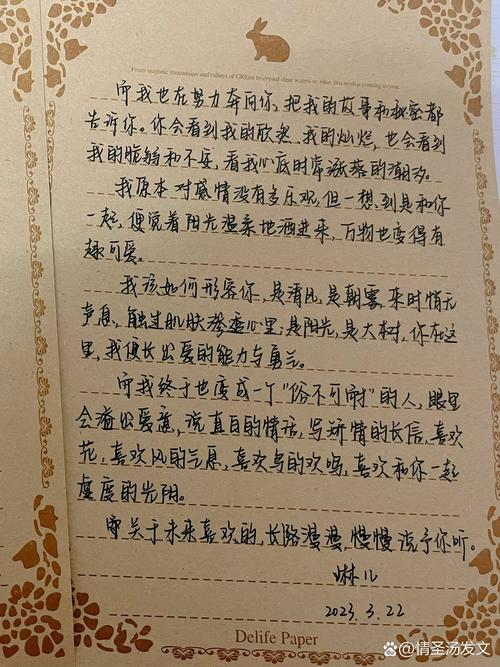 From magnetic mountains and valleys of
to crystal clear waters
is coming to you.
而我也在努力奔向你,把我的故事和秘密都
告诉你。你会看到我的欣然、我的灿烂,也会看到
我的脆弱和不安,看我心底时岸涨落的潮汐。
我原本对感情没有多乐观,但一想到是和你
一起,便觉着阳光温柔地洒进来,万物也变得有
趣可爱。
我该如何形容你,是清风,是朝雾,来时悄无
声息,触过肌肤渗透心里;是阳光,是大树,你在这
里,我便长出爱的能力与勇气。
而我终于也变成一个“俗不可耐”的人,眼里
会溢出爱意,说直白的情话,写矫情的长信,喜欢
花,喜欢风的气息,喜欢鸟的欢鸣,喜欢和你一起
虚度的光阴。
关于未来喜欢的,长路漫漫,慢慢说予你听。
琳儿
2023.3.22
Delife Paper
@情圣汤发文